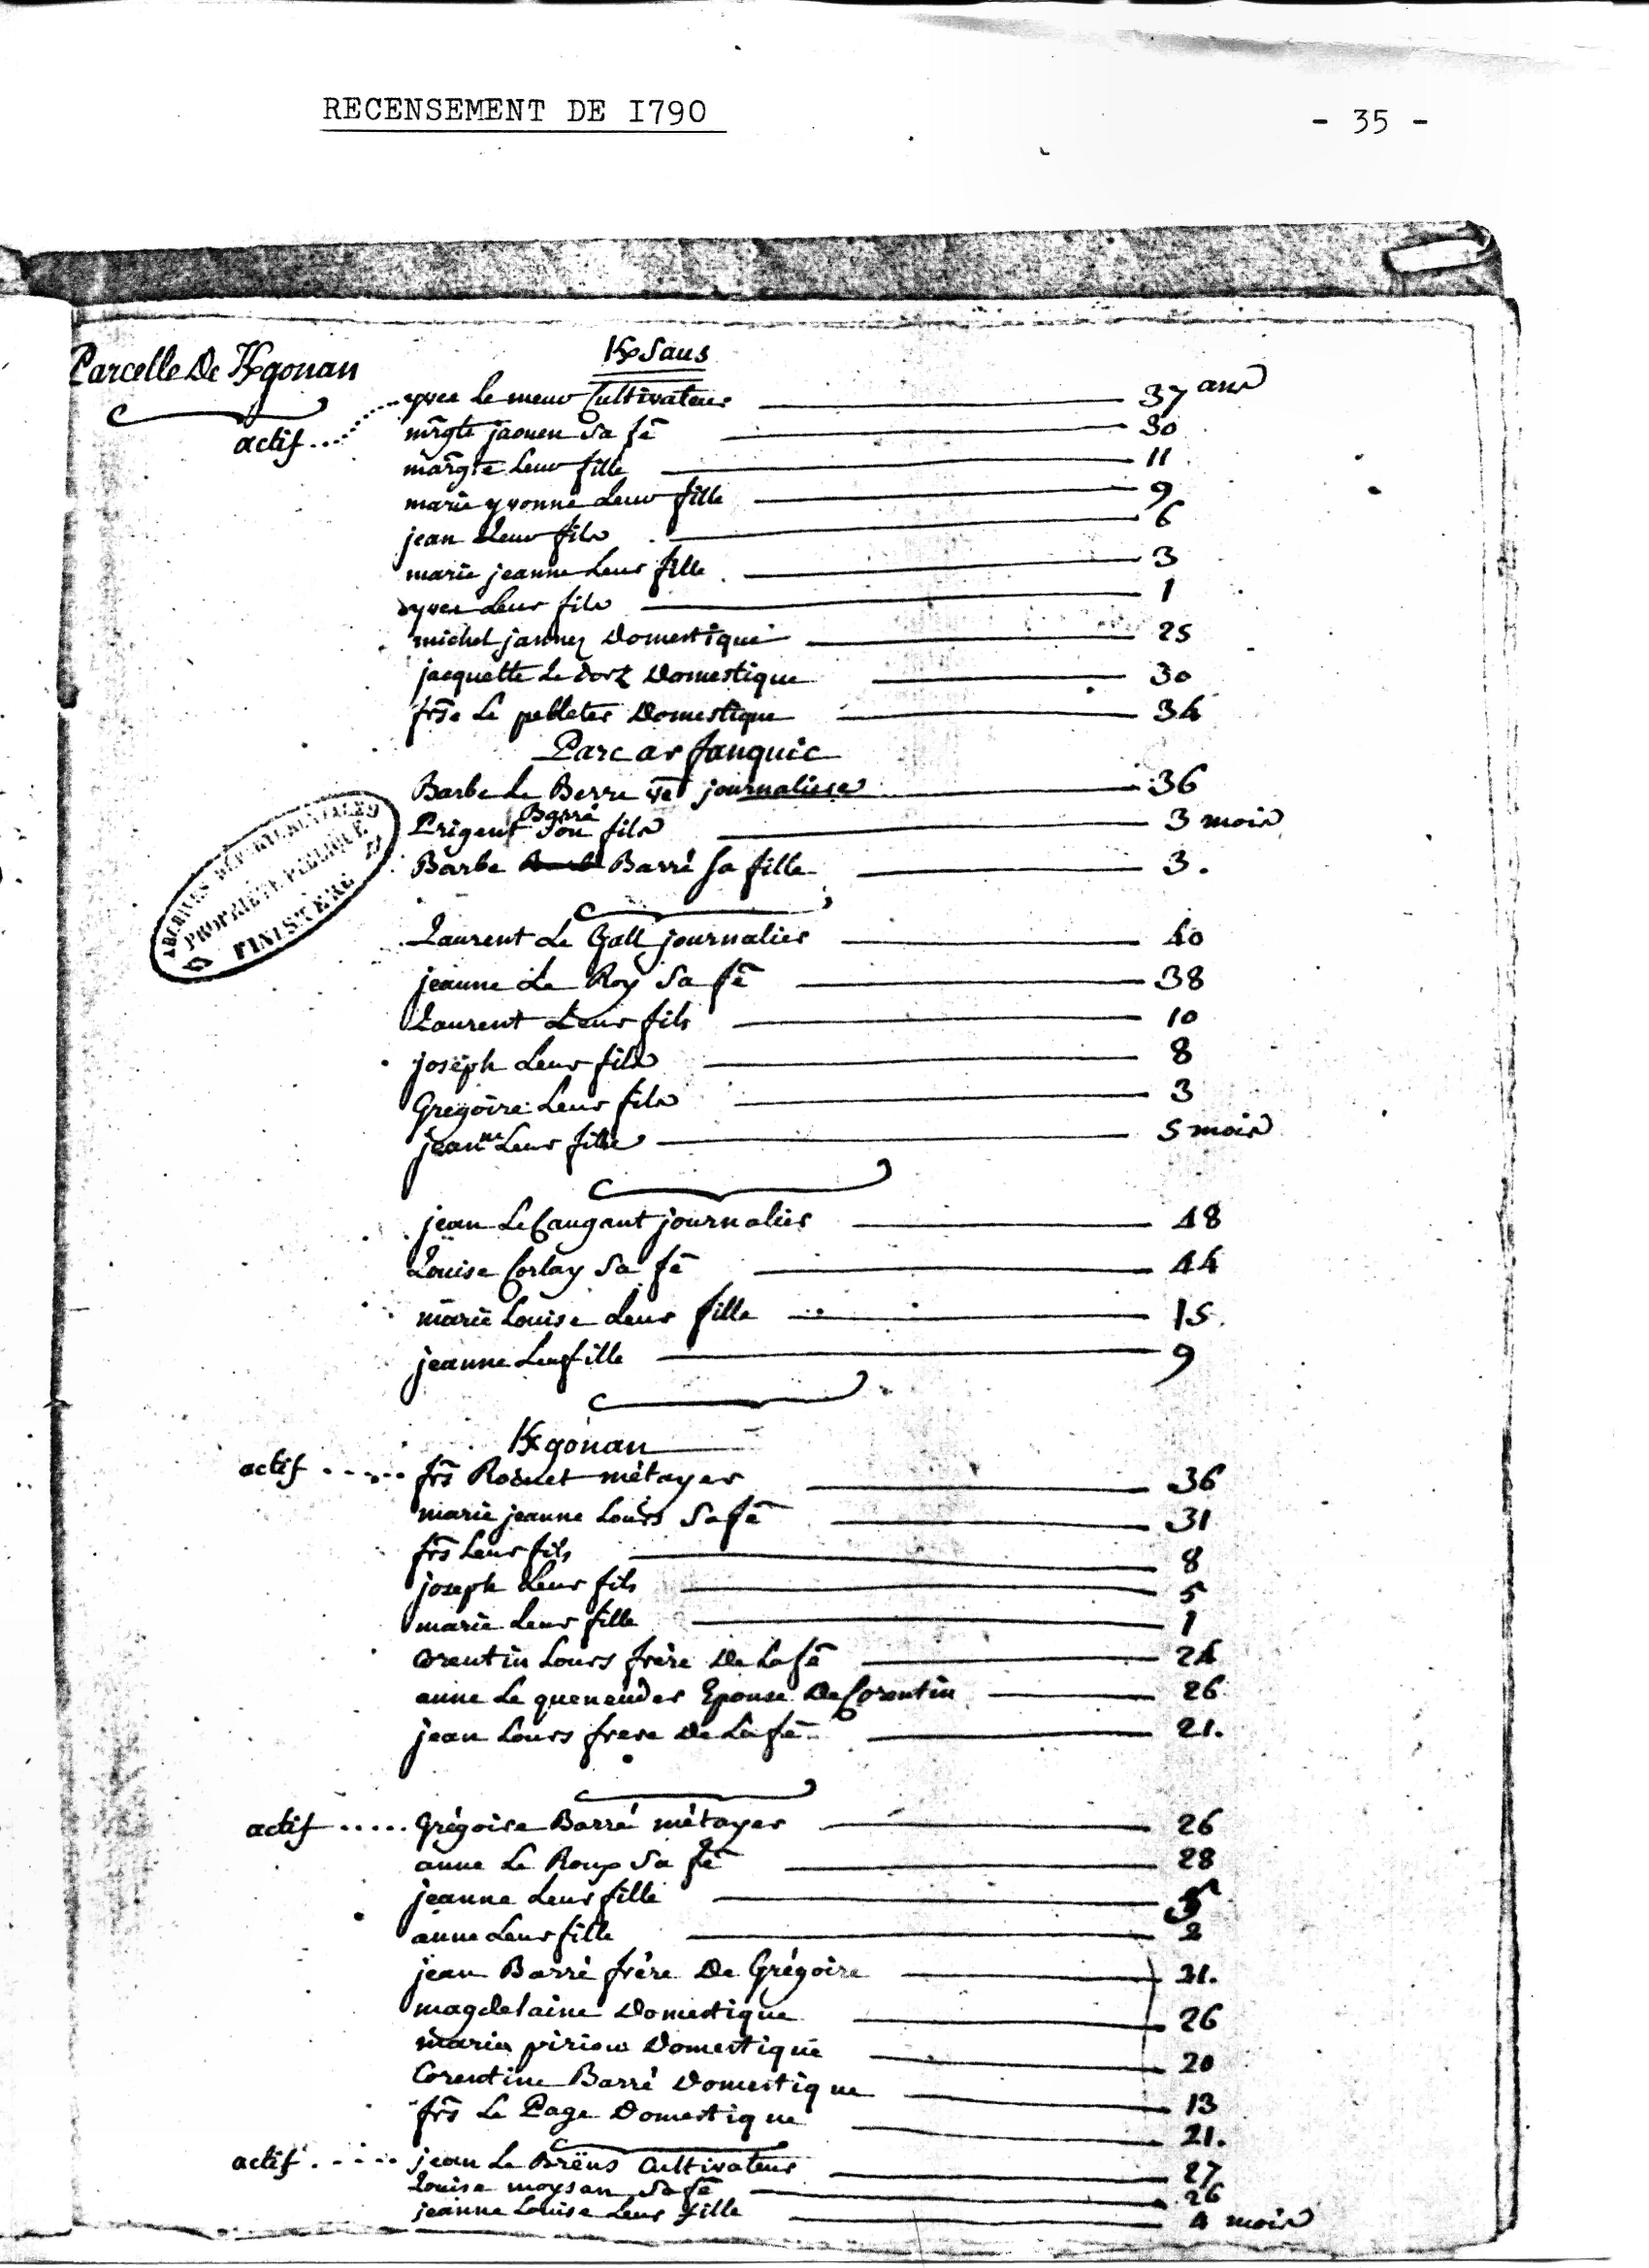 RECENSEMENT DE I790
- 35 -
Parcelle De K̵gonan
K̵saus
actif..... yves le meur Cultivateur 37 ans
mărgte jaouen Sa fē 30
mărgte Leur fille 11
marie yvonne Leur fille 9
jean Leur fils 6
marie jeanne Leur fille 3
yves Leur fils 1
michel jannez Domestique 25
jacquette Le dorz Domestique 30
frs̄e Le pelleter Domestique 34
Parc ar fanquic
Barbe Le Berre ve journaliere 36
Barré
Prigent Son fils 3 mois
Barbe Barré Sa fille 3.
ARCHIVES DÉPARTEMENTALES
PROPRIÉTÉ PUBLIQUE
FINISTÈRE
Laurent Le Gall journalier 40
jeanne Le Roy Sa fē 38
Laurent Leur fils 10
joseph Leur fils 8
Gregoire Leur fils 3
jeanne Leur fille 5 mois
jean Le Caugant journalier 48
Louise Corlay Sa fē 44
marie Louise Leur fille 15.
jeanne Leur fille 9
K̵gonan
actif ..... frs̄ Rosuet métayer 36
marie jeanne Lours Sa fē 31
frs̄ Leur fils 8
joseph Leur fils 5
marie Leur fille 1
Corentin Lours frère De La fē 24
anne Le queneuder Epouse De Corentin 26
jean Lours frere De La fē 21.
actif ..... Grégoire Barré métayer 26
anne Le Roux Sa fē 28
jeanne Leur fille 5
anne Leur fille 2
jean Barré frère De Grégoire 21.
magdelaine Domestique 26
marie piriou Domestique 20
Corentine Barré Domestique 13
frs̄ Le Page Domestique 21.
actif ..... jean Le Brëus Cultivateur 27
Louise moysan Sa fē 26
jeanne Louise Leur fille 4 mois